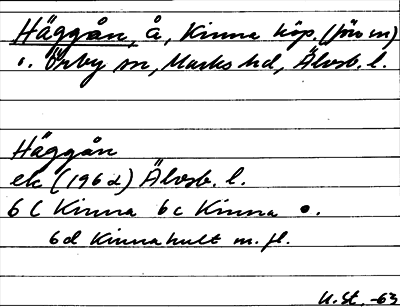 Häggån, å, Kinna köp. (förs m)
o. Örby sn, Marks hd, Älvsb. l.
Häggån
ek (1962) Älvsb. l.
6 C Kinna 6c Kinna o.
6d Kinnahult m. fl.
U. St. -63